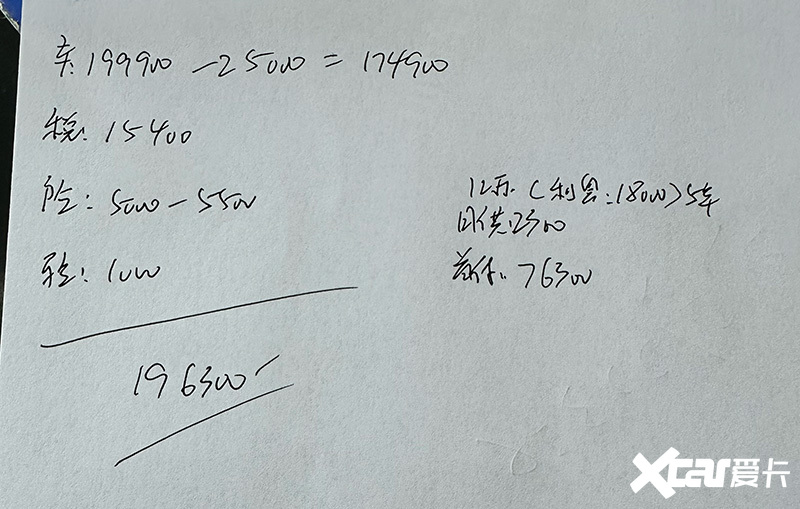 车:199900-25000=174900
税:15400
险:5000-5500
验:1000
196300
12万(利息:18000)5年
月供:2300
首付:76300
Xcar爱卡